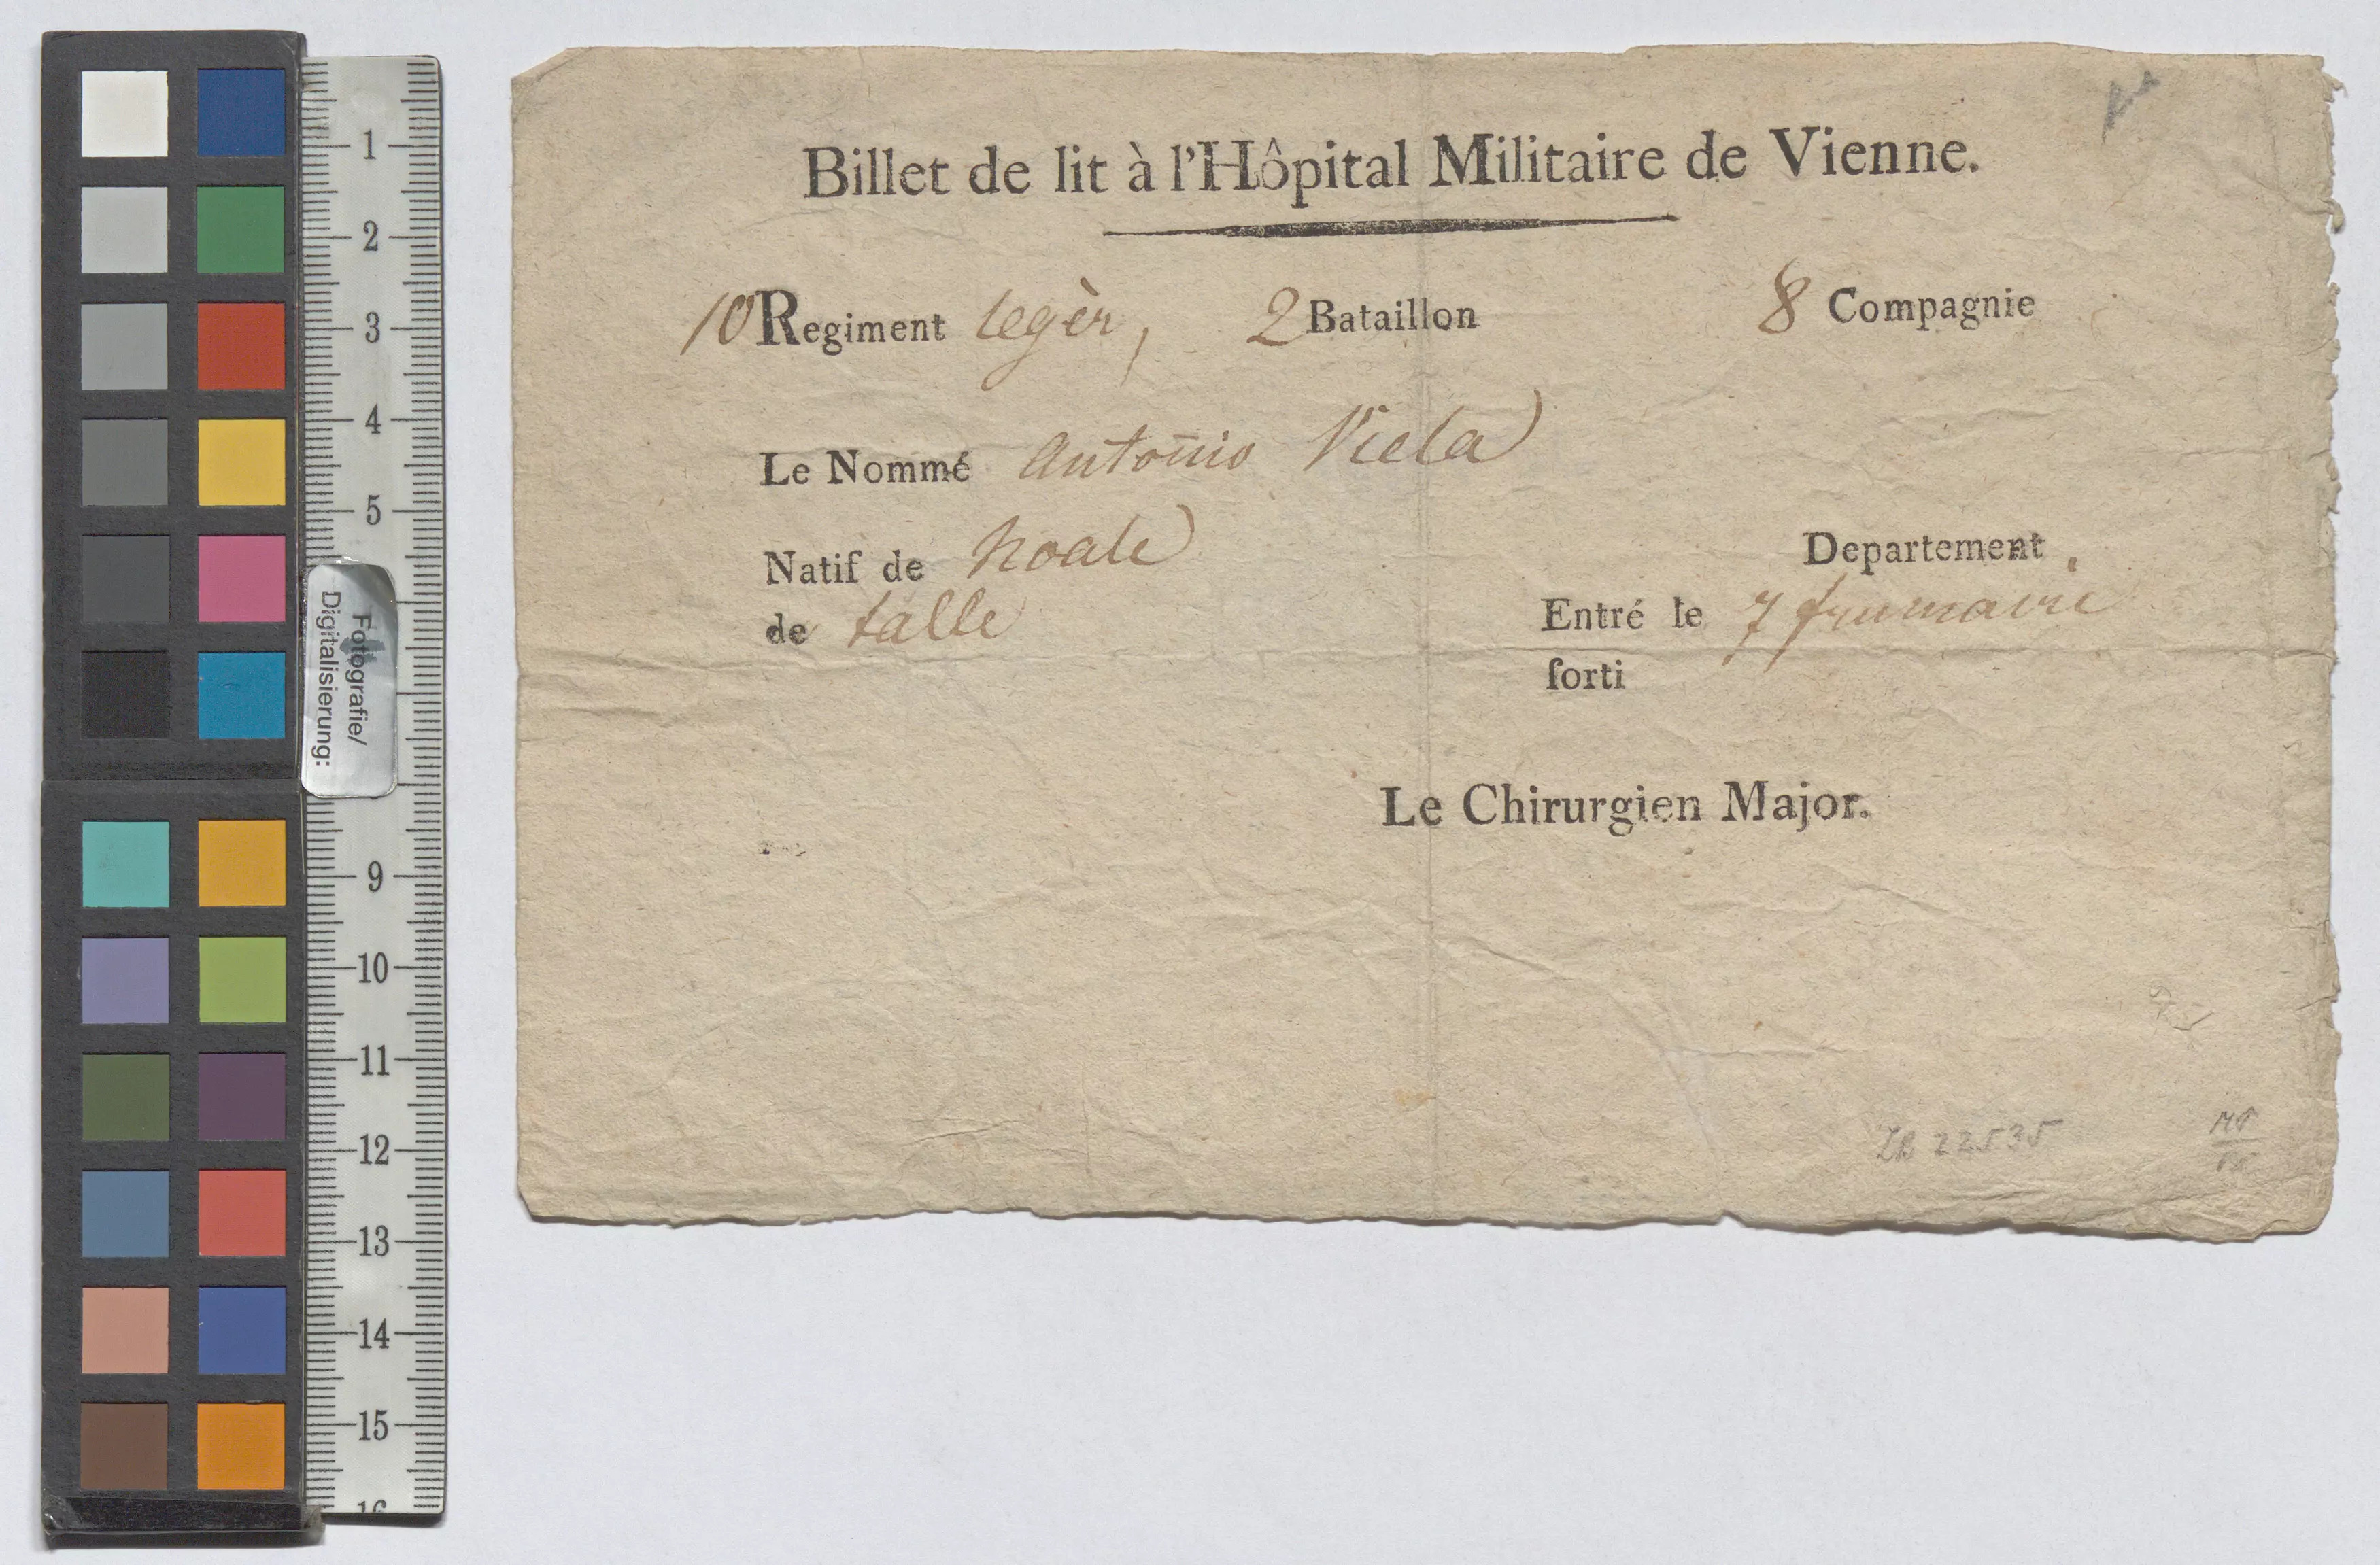 1
2
3
4
5
Fotografie/
Digitalisierung:
9
10
11
12
13
14
15
16
Billet de lit à l'Hôpital Militaire de Vienne.
10 Regiment legèr, 2 Bataillon 8 Compagnie
Le Nommé Antonio Viela
Natif de Noale Departement
de talle Entré le 7 frumaire
ſorti
Le Chirurgien Major.
22535